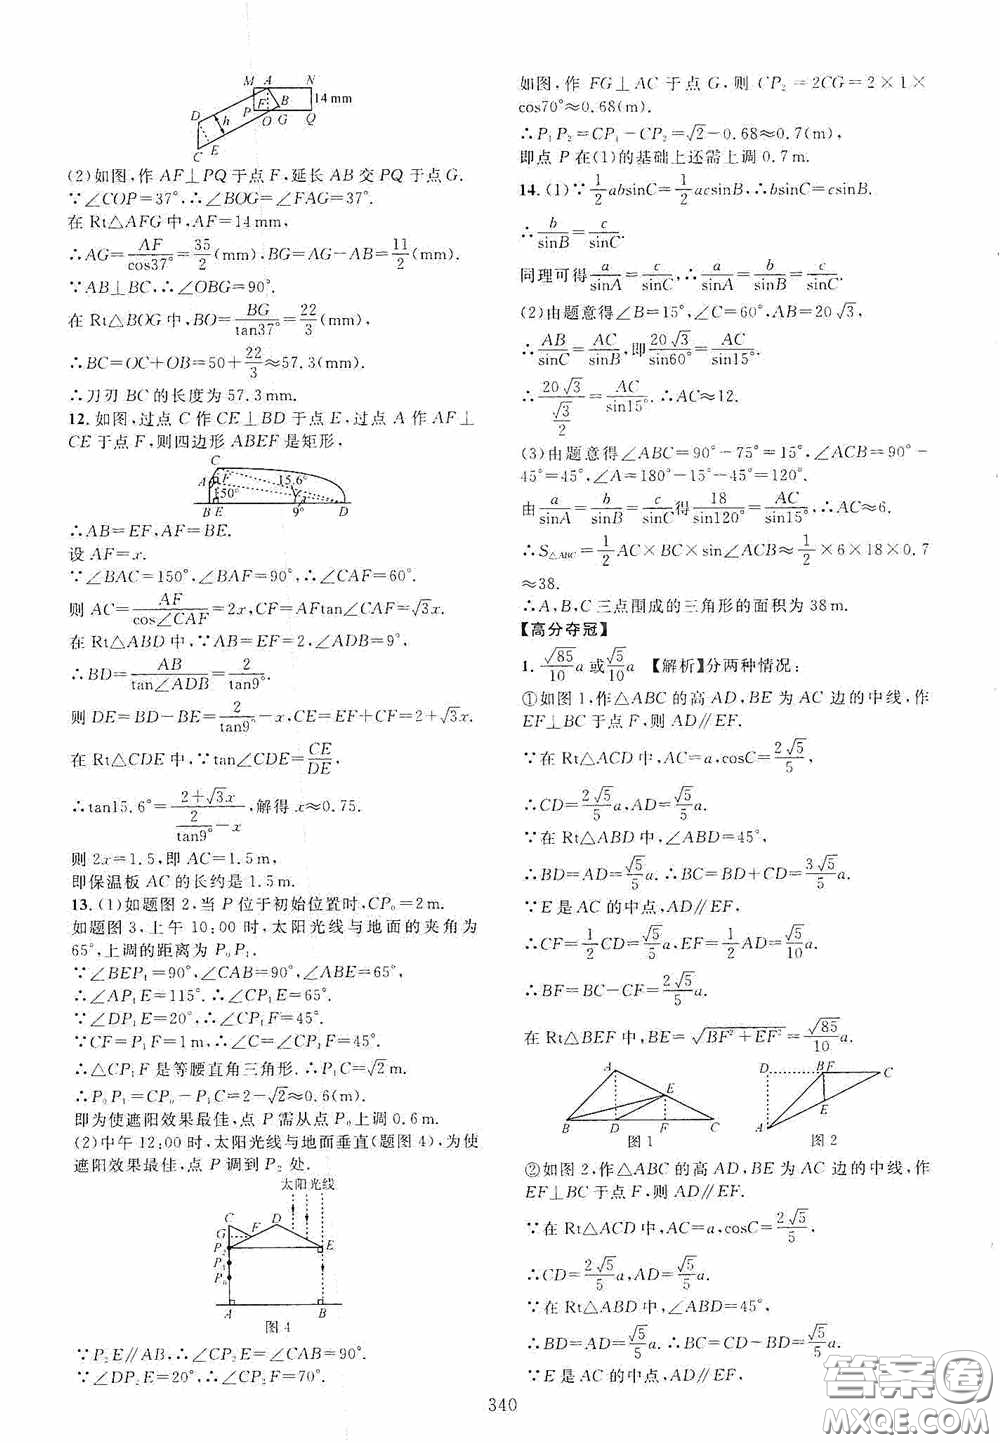 M A N
14 mm
D h F B
P O G Q
C E
(2)如图,作 AF⊥PQ 于点 F,延长 AB 交 PQ 于点 G.
∵∠COP=37°,∴∠BOG=∠FAG=37°.
在 Rt△AFG 中,AF=14 mm,
∴AG=AF/cos37°=35/2(mm),BG=AG-AB=11/2(mm).
∵AB⊥BC,∴∠OBG=90°.
在 Rt△BOG 中,BO=BG/tan37°=22/3(mm),
∴BC=OC+OB=50+22/3≈57.3(mm).
∴刀刃 BC 的长度为 57.3 mm.
12. 如图,过点 C 作 CE⊥BD 于点 E,过点 A 作 AF⊥
CE 于点 F,则四边形 ABEF 是矩形,
C
A F 15.6°
150°
B E 9° D
∴AB=EF,AF=BE.
设 AF=x.
∵∠BAC=150°,∠BAF=90°,∴∠CAF=60°.
则 AC=AF/cos∠CAF=2x,CF=AFtan∠CAF=√3x.
在 Rt△ABD 中,∵AB=EF=2,∠ADB=9°,
∴BD=AB/tan∠ADB=2/tan9°.
则 DE=BD-BE=2/tan9°-x,CE=EF+CF=2+√3x.
在 Rt△CDE 中,∵tan∠CDE=CE/DE,
∴tan15.6°=(2+√3x)/(2/tan9°-x),解得 x≈0.75.
则 2x=1.5,即 AC=1.5 m,
即保温板 AC 的长约是 1.5 m.
13. (1)如题图 2,当 P 位于初始位置时,CP₀=2 m.
如题图 3,上午 10:00 时,太阳光线与地面的夹角为
65°,上调的距离为 P₀P₁.
∵∠BEP₁=90°,∠CAB=90°,∠ABE=65°,
∴∠AP₁E=115°.∴∠CP₁E=65°.
∵∠DP₁E=20°,∴∠CP₁F=45°.
∵CF=P₁F=1 m,∴∠C=∠CP₁F=45°.
∴△CP₁F 是等腰直角三角形.∴P₁C=√2 m.
∴P₀P₁=CP₀-P₁C=2-√2≈0.6(m).
即为使遮阳效果最佳,点 P 需从点 P₀上调 0.6 m.
(2)中午 12:00 时,太阳光线与地面垂直(题图 4),为使
遮阳效果最佳,点 P 调到 P₂ 处.
太阳光线
C F D
G
P₂ E
P₁
P₀
A B
图 4
∵P₂E∥AB,∴∠CP₂E=∠CAB=90°.
∵∠DP₂E=20°,∴∠CP₂F=70°.
如图,作 FG⊥AC 于点 G,则 CP₂=2CG=2×1×
cos70°≈0.68(m).
∴P₁P₂=CP₁-CP₂=√2-0.68≈0.7(m),
即点 P 在(1)的基础上还需上调 0.7 m.
14. (1)∵1/2absinC=1/2acsinB,∴bsinC=csinB.
∴b/sinB=c/sinC.
同理可得a/sinA=c/sinC,∴a/sinA=b/sinB=c/sinC.
(2)由题意得∠B=15°,∠C=60°,AB=20√3.
∴AB/sinC=AC/sinB,即20√3/sin60°=AC/sin15°.
∴20√3/(√3/2)=AC/sin15°.∴AC≈12.
(3)由题意得∠ABC=90°-75°=15°,∠ACB=90°-
45°=45°,∠A=180°-15°-45°=120°.
由a/sinA=b/sinB=c/sinC得18/sin120°=AC/sin15°,∴AC≈6.
∴S△ABC=1/2AC×BC×sin∠ACB≈1/2×6×18×0.7
≈38.
∴A,B,C 三点围成的三角形的面积为 38 m.
【高分夺冠】
1. √85/10a 或√5/10a 【解析】分两种情况:
①如图 1,作△ABC 的高 AD,BE 为 AC 边的中线,作
EF⊥BC 于点 F,则 AD∥EF.
∵在 Rt△ACD 中,AC=a,cosC=2√5/5,
∴CD=2√5/5a,AD=√5/5a.
∵在 Rt△ABD 中,∠ABD=45°,
∴BD=AD=√5/5a.∴BC=BD+CD=3√5/5a.
∵E 是 AC 的中点,AD∥EF,
∴CF=1/2CD=√5/5a,EF=1/2AD=√5/10a.
∴BF=BC-CF=2√5/5a.
在 Rt△BEF 中,BE=√(BF²+EF²)=√85/10a.
A
E
B D F C
图 1
D BF C
E
A
图 2
②如图 2,作△ABC 的高 AD,BE 为 AC 边的中线,作
EF⊥BC 于点 F,则 AD∥EF.
∵在 Rt△ACD 中,AC=a,cosC=2√5/5,
∴CD=2√5/5a,AD=√5/5a.
∵在 Rt△ABD 中,∠ABD=45°,
∴BD=AD=√5/5a.∴BC=CD-BD=√5/5a.
∵E 是 AC 的中点,AD∥EF,
340
答案圈
MXQE.COM